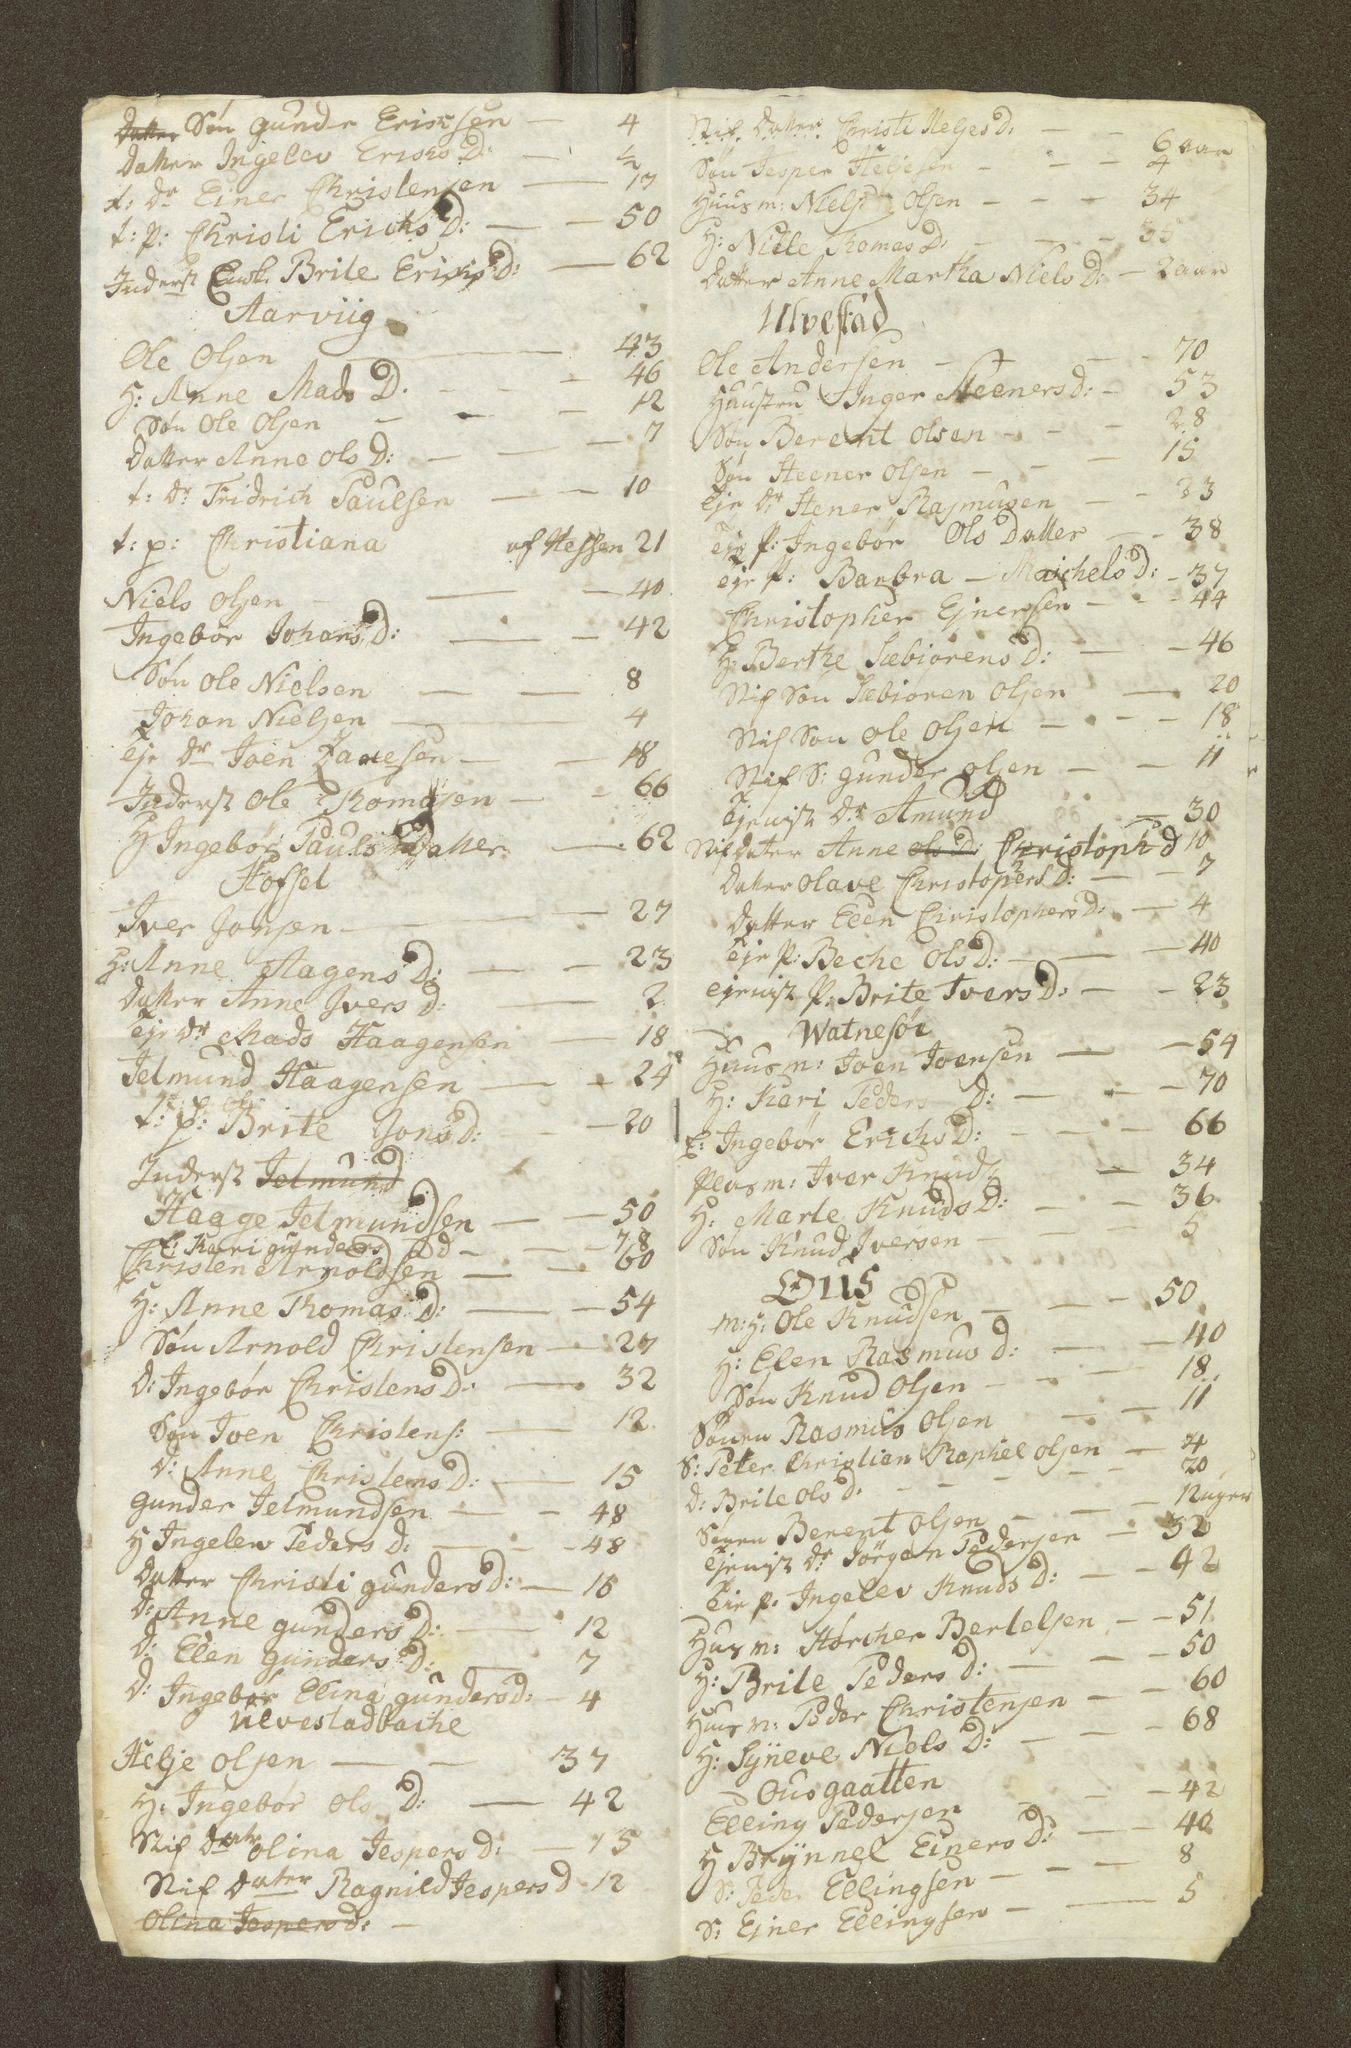 ~~Datter~~ Søn Gunder Erichsen — 4
Datter Ingelev Erichs D: — ½
t: Dr Einer Christensen — 17
t: p: Christi Erichs D: — 50
Inderst Enk: Brite Erichs D: — 62
Aarviig
Ole Olsen — 43
H: Anne Mads D. — 46
Søn Ole Olsen — 12
Datter Anne Ols D: — 7
t: Dr Fridrich Paulsen — 10
t: p: Christiana af Hessen 21
Niels Olsen — 40
Ingebør Johans D: — 42
Søn Ole Nielsen — 8
Johan Nielsen — 4
Tje Dr Joen — 18
Inderst Ole Thomasen — 66
H Ingebør Pauls Datter — 62
Hossel
Iver Jonsen — 27
H: Anne Aagens D: — 23
Datter Anne Ivers D: — 2
Tje Dr Mads Haagensen — 18
Jelmund Haagensen — 24
t: p: Brite Jons D: — 20
Inderst ~~Jelmund~~
Haage Jelmundsen — 50
E: Kari Gunders D — 78
Christen Arnoldsen — 60
H: Anne Thomas D: — 54
Søn Arnold Christensen — 27
D: Ingebør Christens D: — 32
Søn Joen Christens: — 12
D: Anne Christens D: — 15
Gunder Jelmundsen — 48
H Ingelev Peders D: — 48
Datter Christi Gunders D: — 16
D: Anne Gunders D: — 12
D: Elen Gunders D: — 7
D: Ingebør Elina Gunders D: — 4
Ulvestadbache
Helje Olsen — 37
H: Ingebør Ols D: — 42
Stif Datr Olina Jespers D: — 15
Stif Dater Ragnild Jespers D 12
~~Olina Jespers D:~~ —
Stif Datter Christi Heljes D: — 6 aar
Søn Jesper Heljesen — 4
Huus m: Niels Olsen — 34
H: Nille Thomas D: — 35
Datter Anne Martha Niels D: — 2 aar
Ulvestad
Ole Andersen — 70
Huustru Inger Steeners D: — 53
Søn Berent Olsen — 28
Søn Steener Olsen — 15
Tje Dr Stener Rasmusen — 23
Tje P: Ingebør Ols Datter — 38
Tje P: Barbra — Maichels D: — 37
Christopher Ejnersen — 44
H: Berthe Sæbiørens D: — 46
Stif Søn Sæbiøren Olsen — 20
Stif Søn Ole Olsen — 18
Stif S: Gunder Olsen — 11
Tjenist Dr Amund — 30
Stif Dater Anne ~~Ols D:~~ Christoph D 10
Datter Olave Christophers D: — 7
Datter Elen Christophers D: — 4
Tje P: Beche Ols D: — 40
Tjenist P: Brite Ivers D: — 23
Watnesør
Huus m: Joen Joensen — 54
H: Kari Peders D: — 70
E: Ingebør Erichs D: — 66
Plas m: Iver Knuds: — 34
H: Marte Knuds D: — 36
Søn Knud Iversen — 5
Ous
m: H: Ole Knudsen — 50
H: Elen Rasmus D: — 40
Søn Knud Olsen — 18
Sønen Rasmus Olsen — 11
S: Peter Christian Raphiel Olsen — 4
D: Brite Ols D: — 20
Sønen Berent Olsen — 12 uger
Tjenist Dr Jørgen Pedersen — 32
Tje P: Ingelev Knuds D: — 42
Hus m: Størcher Bertelsen — 51
H: Brite Peders D: — 50
Huus m: Peder Christensen — 60
H: Syneve Niels D: — 68
Ousgaatten
Elling Pedersen — 42
H Brynnel Einers D: — 40
S: Peder Ellingsen — 8
S: Ejner Ellingsen — 5